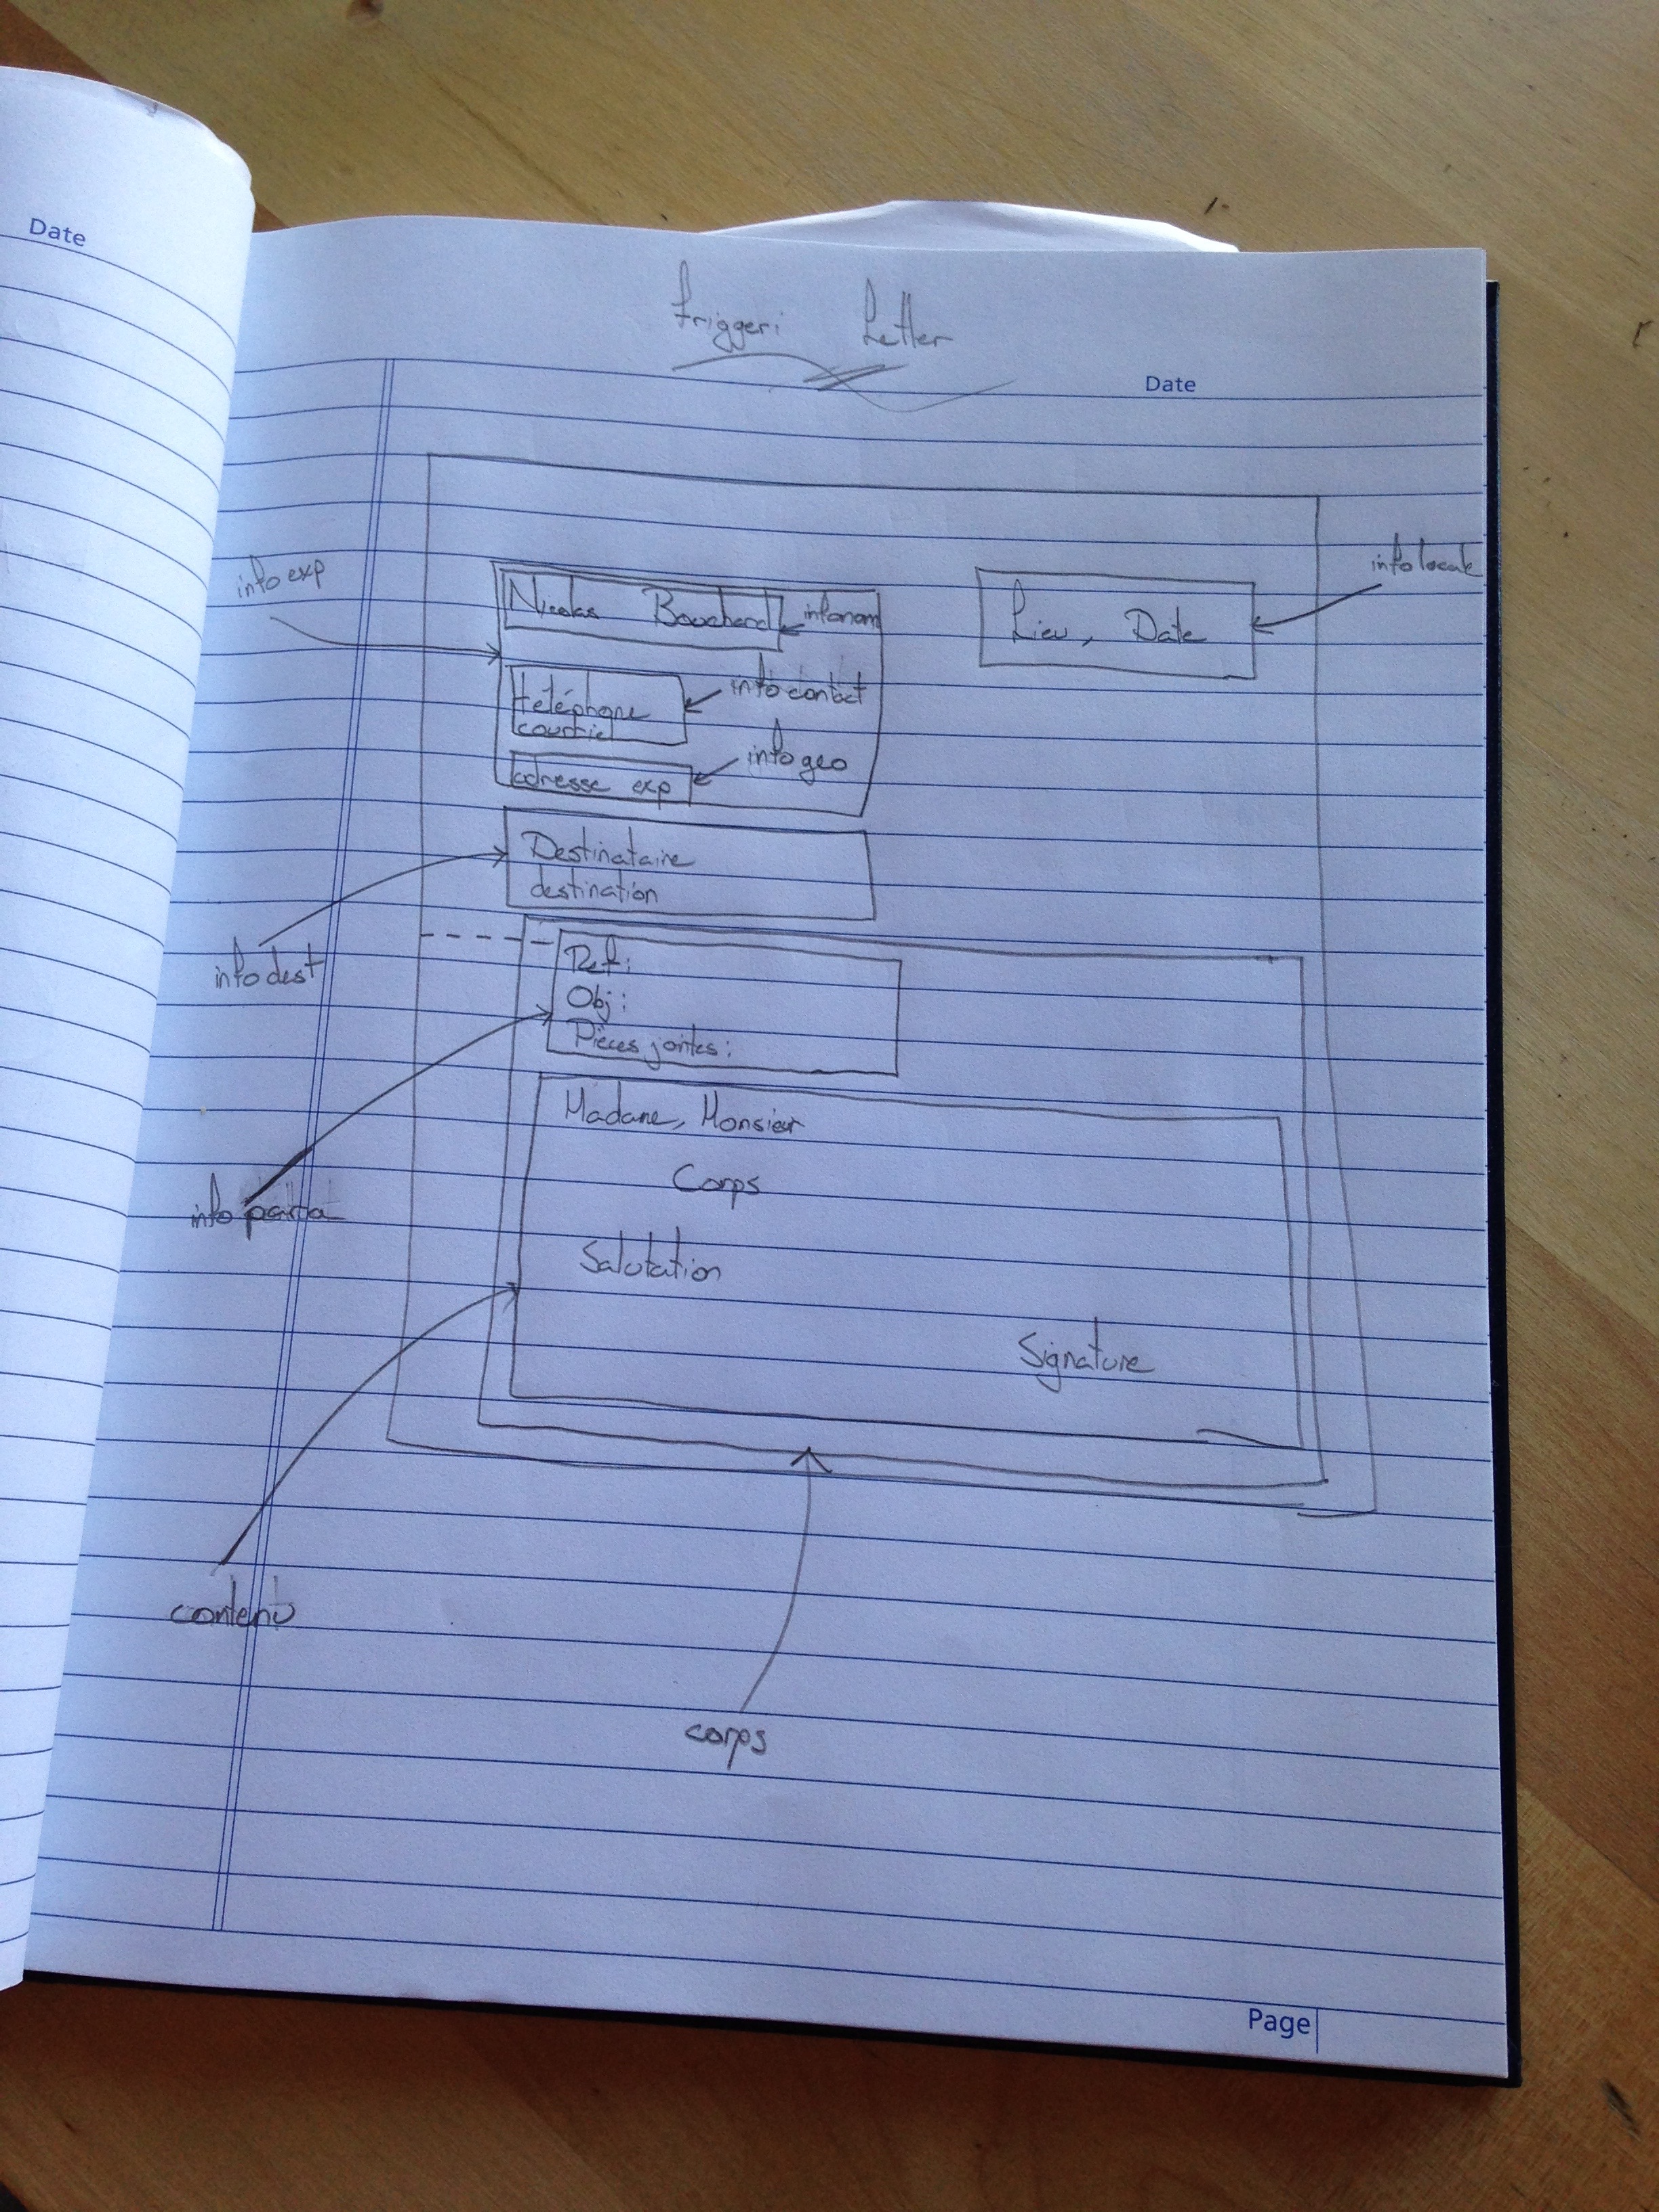 Date
friggeri Letter
Date
info exp
info locale
Nicolas Bouchard
infonom
Lieu, Date
téléphone
courriel
info contact
adresse exp
info geo
Destinataire
destination
info dest
Ref:
Obj:
Pièces jointes:
Madame, Monsieur
info
Corps
Salutation
Signature
contenu
corps
Page